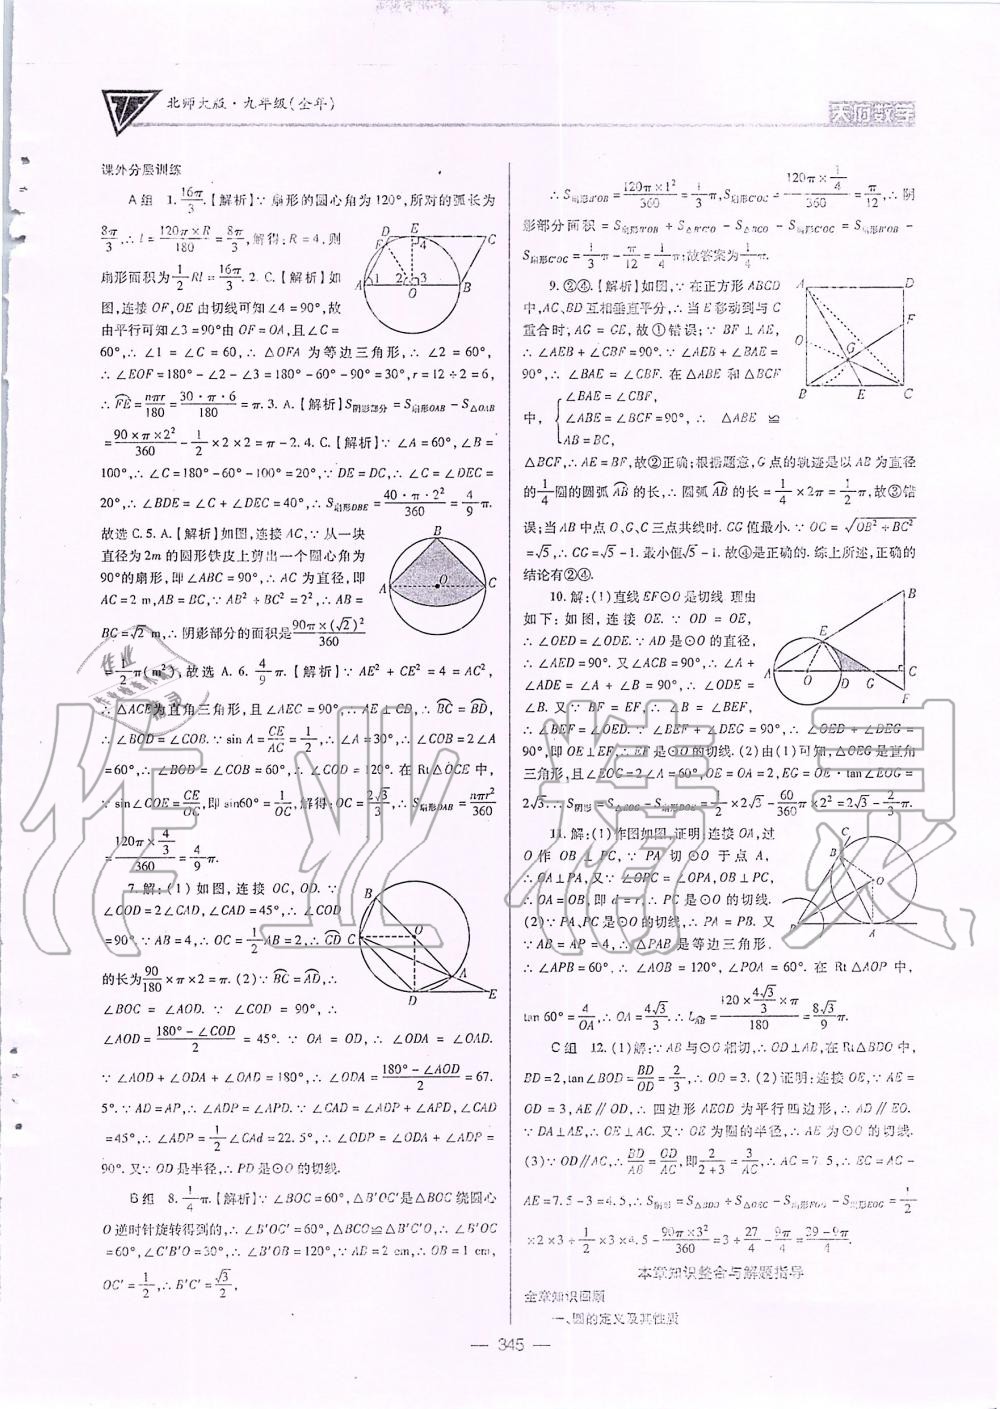 北师大版·九年级(全年)
天府数学
课外分层训练
A组 1. 16π/3.【解析】∵ 扇形的圆心角为120°,所对的弧长为
8π/3,∴ l = 120π×R/180 = 8π/3,解得:R = 4,则
扇形面积为1/2Rl = 16π/3. 2. C.【解析】如
图,连接OF,OE由切线可知∠4 = 90°,故
由平行可知∠3 = 90°由OF = OA,且∠C =
60°,∴ ∠1 = ∠C = 60,∴ △OFA 为等边三角形,∴ ∠2 = 60°,
∴ ∠EOF = 180° - ∠2 - ∠3 = 180° - 60° - 90° = 30°, r = 12 ÷ 2 = 6,
∴ FE = nπr/180 = 30·π·6/180 = π. 3. A.【解析】S阴影部分 = S扇形OAB - S△OAB
= 90×π×2²/360 - 1/2 × 2 × 2 = π - 2. 4. C.【解析】∵ ∠A = 60°, ∠B =
100°,∴ ∠C = 180° - 60° - 100° = 20°,∵ DE = DC,∴ ∠C = ∠DEC =
20°,∴ ∠BDE = ∠C + ∠DEC = 40°,∴ S扇形DBE = 40·π·2²/360 = 4/9 π.
故选C. 5. A.【解析】如图,连接AC,∵ 从一块
直径为2m的圆形铁皮上剪出一个圆心角为
90°的扇形,即∠ABC = 90°,∴ AC 为直径,即
AC = 2 m, AB = BC,∵ AB² + BC² = 2²,∴ AB =
BC = √2 m,∴ 阴影部分的面积是90π×(√2)²/360
= 1/2π(m²),故选 A. 6. 4/9 π.【解析】∵ AE² + CE² = 4 = AC²,
∴ △ACE为直角三角形,且∠AEC = 90°,∴ AE⊥CD,∴ BC = BD,
∴ ∠BOD = ∠COB. ∵ sin A = CE/AC = 1/2,∴ ∠A = 30°,∴ ∠COB = 2∠A
= 60°,∴ ∠BOD = ∠COB = 60°,∴ ∠COD = 120°. 在 Rt△OCE 中,
∵ sin∠COE = CE/OC,即 sin60° = 1/OC,解得:OC = 2√3/3,∴ S扇形OAB = nπr²/360
= 120π×4/3/360 = 4/9 π.
7. 解:(1) 如图,连接 OC, OD. ∵
∠COD = 2∠CAD, ∠CAD = 45°,∴ ∠COD
= 90°. ∵ AB = 4,∴ OC = 1/2AB = 2,∴ CD
的长为90/180 × π × 2 = π. (2)∵ BC = AD,∴
∠BOC = ∠AOD. ∵ ∠COD = 90°,∴
∠AOD = 180° - ∠COD/2 = 45°. ∵ OA = OD,∴ ∠ODA = ∠OAD.
∵ ∠AOD + ∠ODA + ∠OAD = 180°,∴ ∠ODA = 180° - ∠AOD/2 = 67.
5°. ∵ AD = AP,∴ ∠ADP = ∠APD. ∵ ∠CAD = ∠ADP + ∠APD, ∠CAD
= 45°,∴ ∠ADP = 1/2∠CAd = 22.5°,∴ ∠ODP = ∠ODA + ∠ADP =
90°. 又∵ OD是半径,∴ PD是⊙O的切线.
B组 8. 1/4π.【解析】∵ ∠BOC = 60°, △B'OC'是△BOC绕圆心
O逆时针旋转得到的,∴ ∠B'OC' = 60°, △BCO ≌ △B'C'O,∴ ∠B'OC
= 60°, ∠C'B'O = 30°,∴ ∠B'OB = 120°,∵ AB = 2 cm,∴ OB = 1 cm,
OC' = 1/2,∴ B'C' = √3/2,
∴ S扇形B'OB = 120π×1²/360 = 1/3π, S扇形C'OC = 120π×1/4/360 = π/12,∴ 阴
影部分面积 = S扇形B'OB + S△B'C'O - S△BCO - S扇形C'OC = S扇形B'OB -
S扇形C'OC = 1/3π - π/12 = 1/4π;故答案为1/4π.
9. ②④.【解析】如图,∵ 在正方形ABCD
中,AC,BD互相垂直平分,∴ 当E移动到与C
重合时,AG = CE,故①错误;∵ BF⊥AE,
∴ ∠AEB + ∠CBF = 90°. ∵ ∠AEB + ∠BAE =
90°,∴ ∠BAE = ∠CBF. 在△ABE和△BCF
中, { ∠BAE = ∠CBF, ∠ABE = ∠BCF = 90°, AB = BC, ∴ △ABE ≌
△BCF,∴ AE = BF,故②正确;根据题意,G点的轨迹是以AB为直径
的1/4圆的圆弧AB的长,∴ 圆弧AB的长 = 1/4 × 2π = 1/2π,故③错
误;当AB中点O、G、C三点共线时.CG值最小.∵ OC = √OB² + BC²
= √5,∴ CG = √5 - 1. 最小值√5 - 1. 故④是正确的. 综上所述,正确的
结论有②④.
10. 解:(1)直线EF⊙O是切线 理由
如下:如图,连接 OE. ∵ OD = OE,
∴ ∠OED = ∠ODE. ∵ AD是⊙O的直径,
∴ ∠AED = 90°. 又∠ACB = 90°,∴ ∠A +
∠ADE = ∠A + ∠B = 90°,∴ ∠ODE =
∠B. 又∵ BF = EF,∴ ∠B = ∠BEF,
∴ ∠BEF = ∠OED. ∵ ∠BEF + ∠DEG = 90°,∴ ∠OED + ∠DEG =
90°,即OE⊥EF,∴ EF是⊙O的切线. (2)由(1)可知,△OEG是直角
三角形,且∠EOG = 2∠A = 60°, OE = OA = 2, EG = OE·tan∠EOG =
2√3,∴ S阴影 = S△EOG - S扇形DOE = 1/2 × 2 × 2√3 - 60/360 π × 2² = 2√3 - 2/3π.
11. 解:(1)作图如图,证明:连接OA,过
O作 OB⊥PC,∵ PA 切⊙O 于点 A,
∴ OA⊥PA,又∵ ∠OPC = ∠OPA, OB⊥PC,
∴ OA = OB,即 d = r,∴ PC 是⊙O的切线.
(2)∵ PA,PC是⊙O的切线,∴ PA = PB. 又
∵ AB = AP = 4,∴ △PAB 是等边三角形.
∴ ∠APB = 60°,∴ ∠AOB = 120°, ∠POA = 60°. 在 Rt△AOP 中,
tan 60° = 4/OA,∴ OA = 4√3/3. ∴ lAB = 120×4√3/3×π/180 = 8√3/9 π.
C组 12. (1)解:∵ AB与⊙O相切,∴ OD⊥AB,在Rt△BDO中,
BD = 2, tan∠BOD = BD/OD = 2/3,∴ OD = 3. (2)证明:连接OE,∵ AE =
OD = 3, AE∥OD,∴ 四边形 AEOD 为平行四边形,∴ AD∥EO.
∵ DA⊥AE,∴ OE⊥AC. 又∵ OE为圆的半径,∴ AC为⊙O的切线.
(3)∵ OD∥AC,∴ BD/AB = OD/AC,即2/2+3 = 3/AC,∴ AC = 7.5,∴ EC = AC -
AE = 7.5 - 3 = 4.5,∴ S阴影 = S△BDO + S△OEC - S扇形FOD - S扇形EOG = 1/2
×2×3 + 1/2×3×4.5 - 90π×3²/360 = 3 + 27/4 - 9π/4 = 39-9π/4.
本章知识整合与解题指导
全章知识回顾
一、圆的定义及其性质
— 345 —
作业精灵